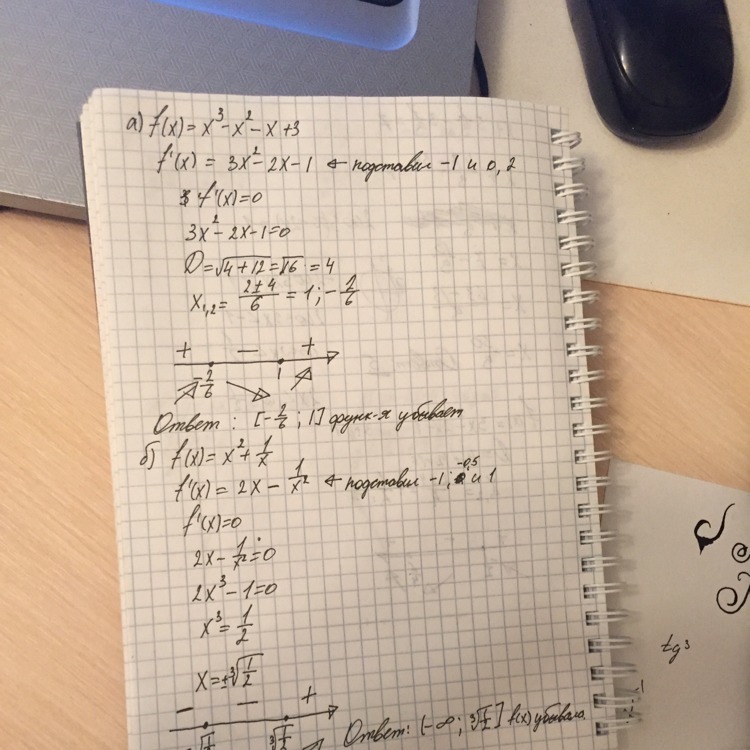 а) f(x) = x³ - x² - x + 3
f'(x) = 3x² - 2x - 1 ← подставил -1 и 0, 2
f'(x) = 0
3x² - 2x - 1 = 0
D = √4 + 12 = √16 = 4
x₁,₂ = (2 ± 4)/6 = 1; -2/6
+ — +
-2/6 1
Ответ: [-2/6; 1] функ-я убывает
б) f(x) = x² + 1/x
f'(x) = 2x - 1/x² ← подставил -1; -0,5 и 1
f'(x) = 0
2x - 1/x² = 0
2x³ - 1 = 0
x³ = 1/2
x = ±³√(1/2)
— — +
³√(1/2)
Ответ: (-∞; ³√(1/2)] f(x) убывала.
tg³